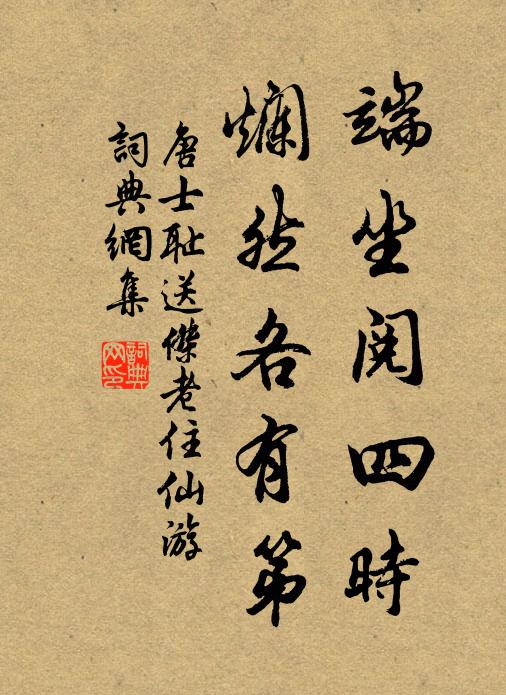 端坐阅四時
爛然各有第
唐士耻送傑老住仙游
詞典網集
詞典
网印